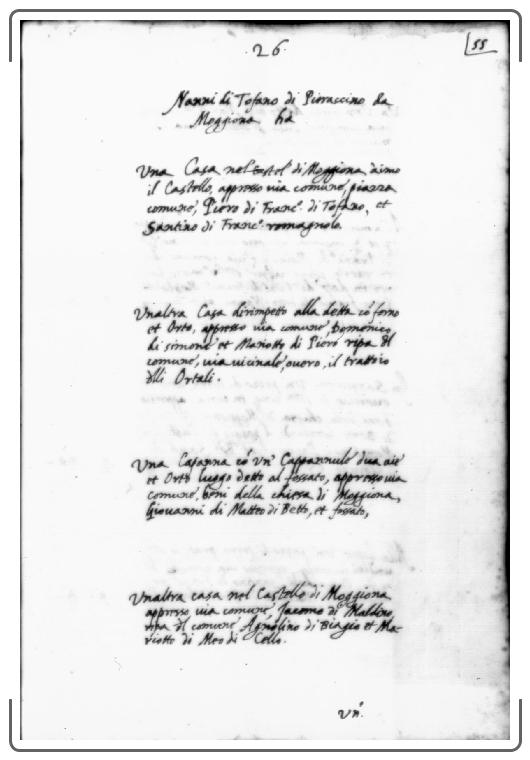 .26.
55
Nanni di Tofano di Pieraccino da
Moggiona ha
Una Casa nel Castel di Moggiona
il Castello, appresso via comune, piazza
comune, Piero di Franc.º di Tofano, et
Santino di Franc.º romagnolo.
Unaltra Casa dirimpetto alla detta cō forno
et Orto, appresso via comune, Domenico
di simone et Mariotto di Piero ripa dl
comune, via vicinale, overo, il
dlli Ortali.
Una Capanna cō un' dua
et Orto luogo detto al fossato, appresso via
comune, beni della chiesa di Moggiona,
Giovanni di Matteo di Betto, et fossato,
Unaltra casa nel Castello di Moggiona
appresso, via comune Jacomo di
ripa dl comune Agnolino di Biagio et Ma-
riotto di Meo di Cello.
Un'